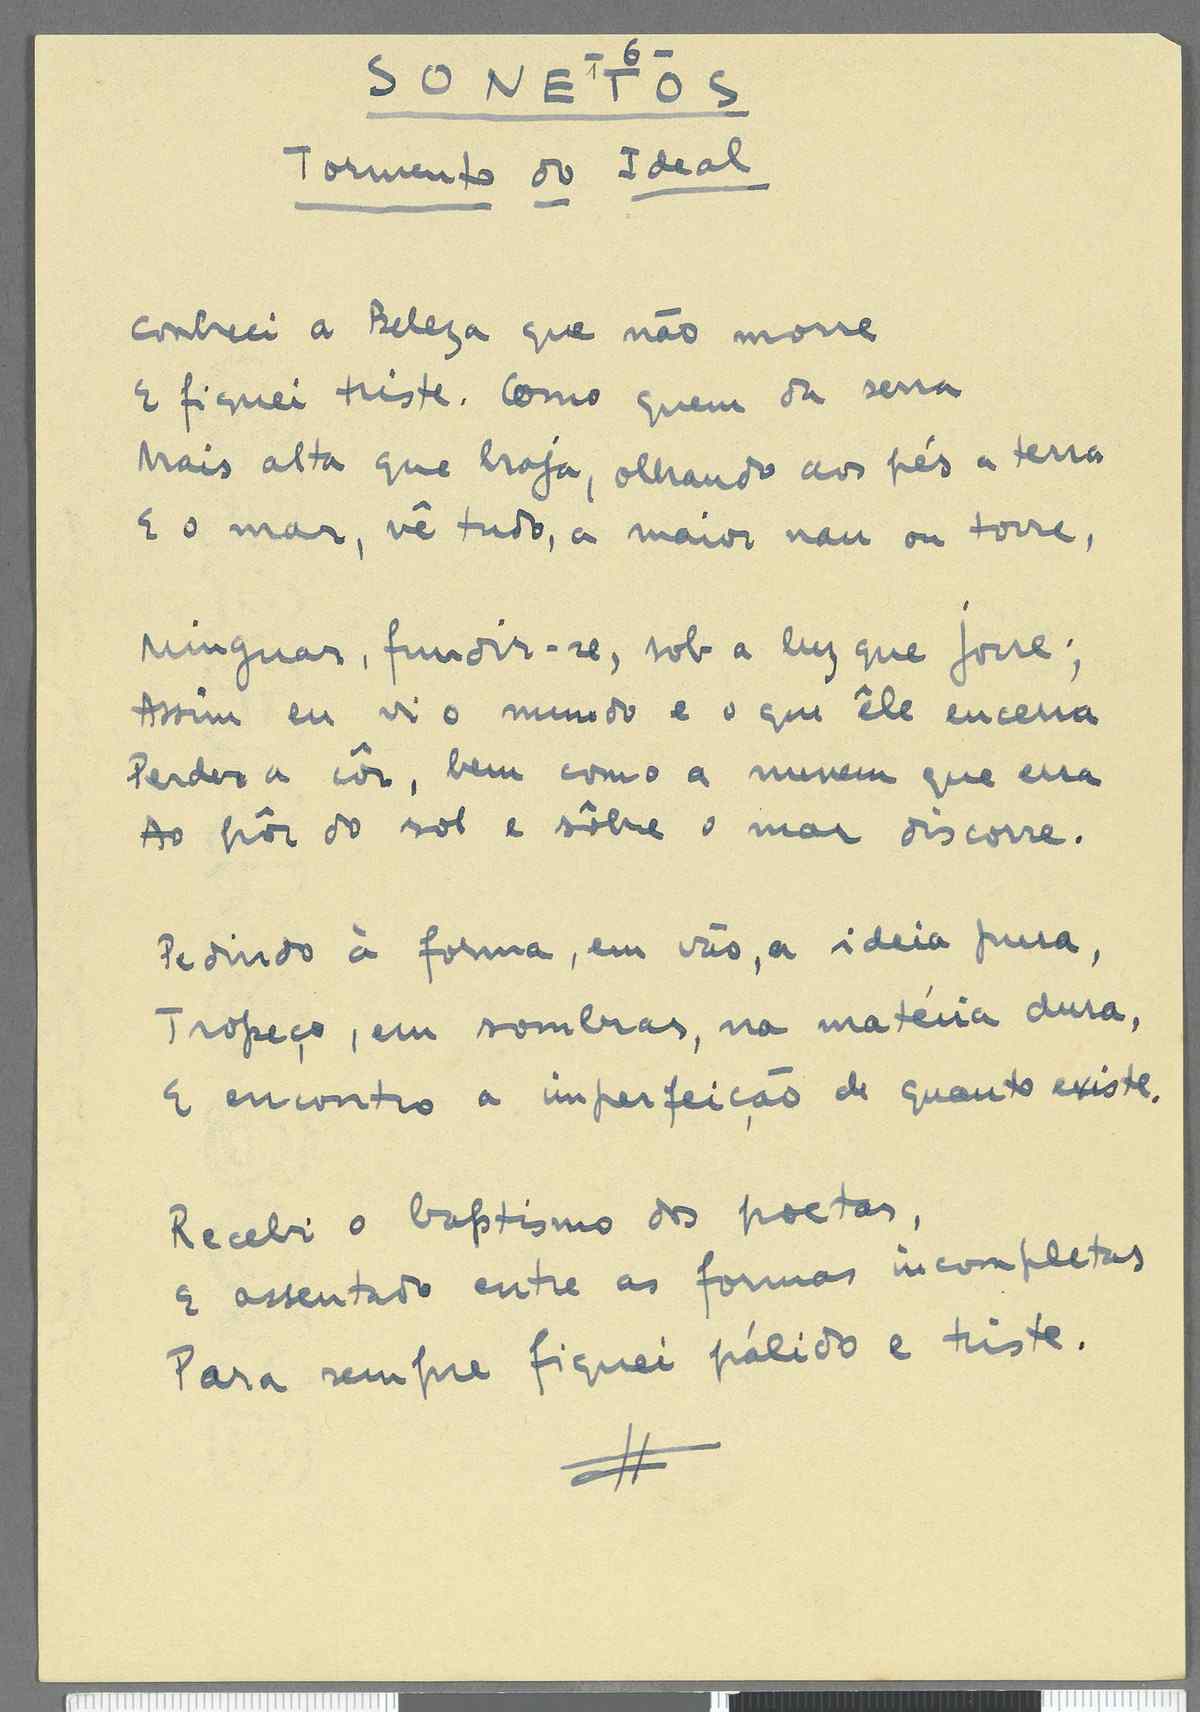 - 6 -
SONETOS
Tormento do Ideal
Conheci a Beleza que não morre
E fiquei triste. Como quem da serra
Mais alta que haja, olhando aos pés a terra
E o mar, vê tudo, a maior nau ou torre,
Minguar, fundir-se, sob a luz que jorre;
Assim eu vi o mundo e o que êle encerra
Perder a côr, bem como a nuvem que erra
Ao pôr do sol e sôbre o mar discorre.
Pedindo à forma, em vão, a ideia pura,
Tropeço, em sombras, na matéria dura,
E encontro a imperfeição de quanto existe.
Recebi o baptismo dos poetas,
E assentado entre as formas incompletas
Para sempre fiquei pálido e triste.